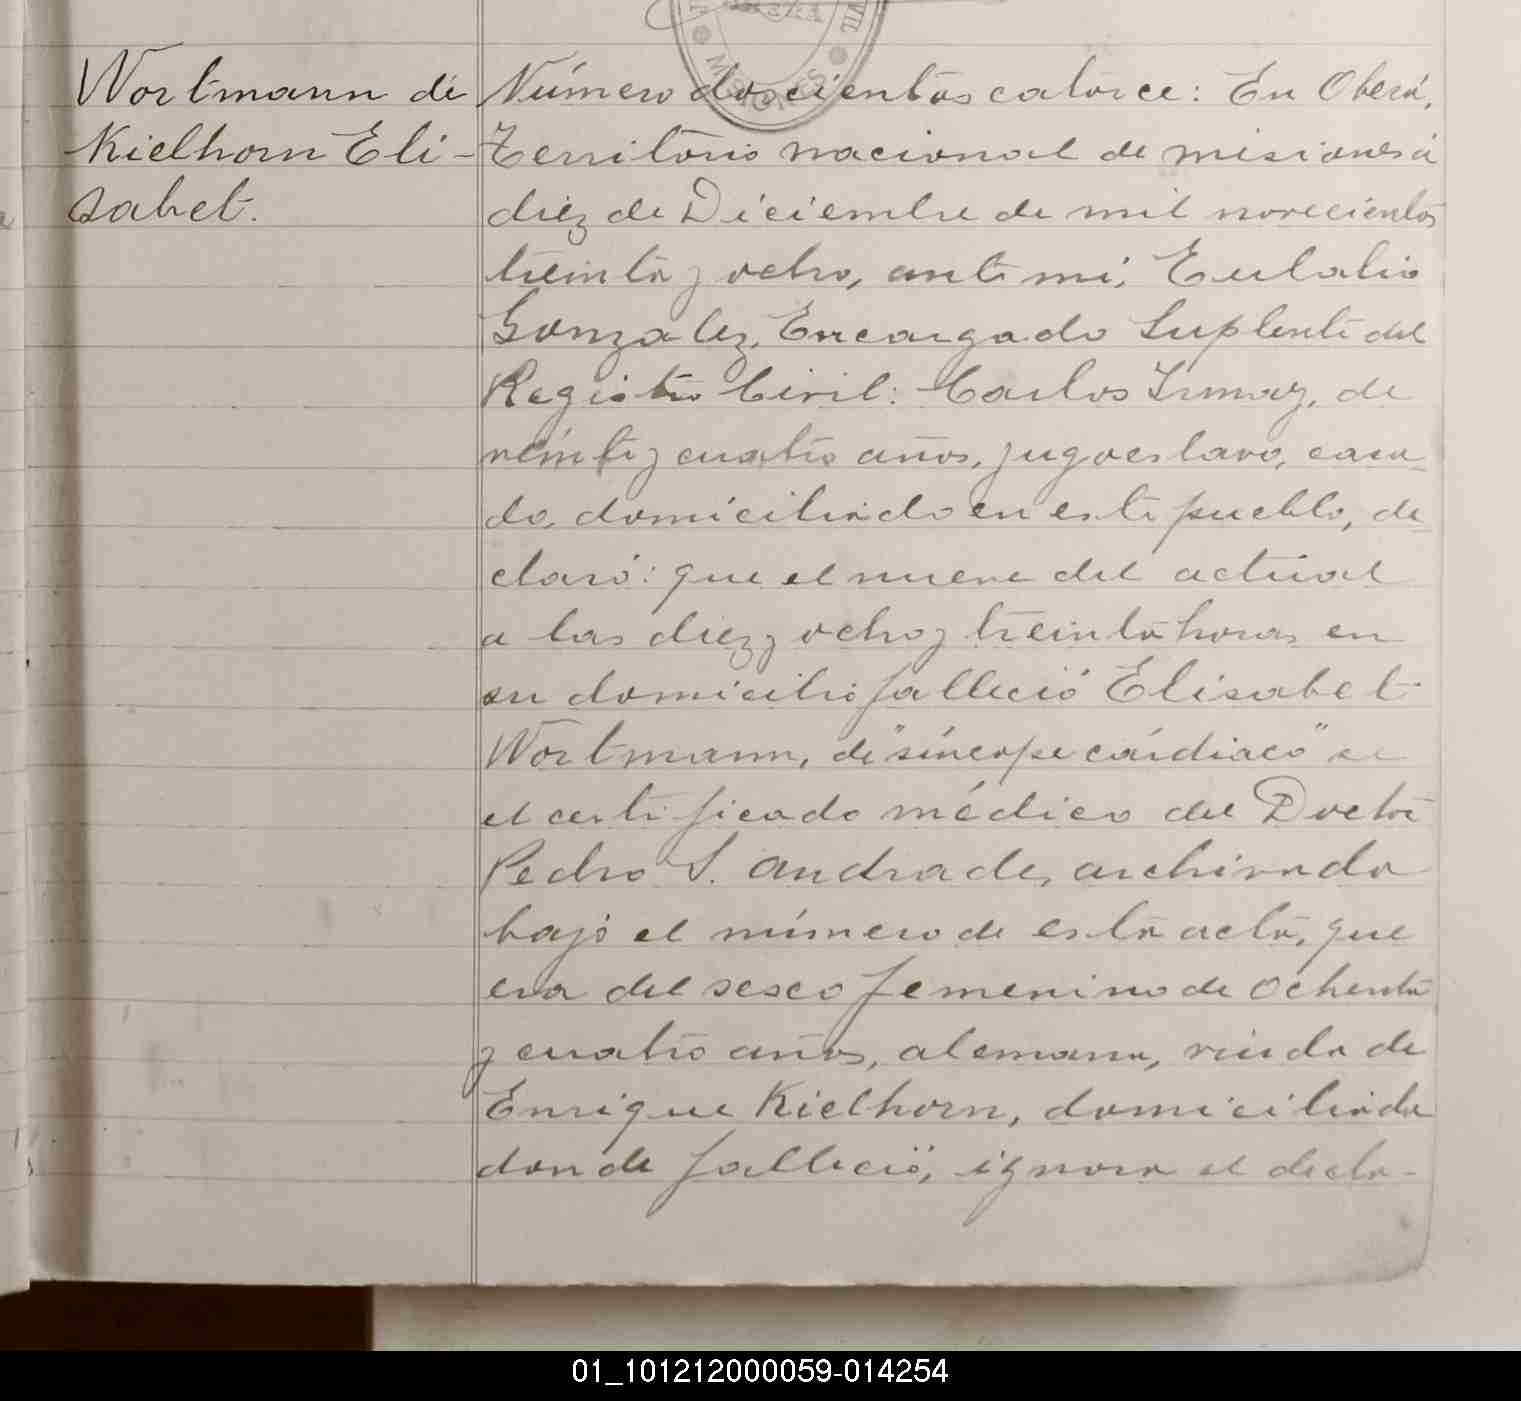 Wortmann de
Kielhorn Eli-
sabet.
MISIONES
Número doscientos catorce: En Oberá,
Territorio nacional de misiones a
diez de Diciembre de mil novecientos
treinta y ocho, ante mi, Eulalio
Gonzalez, Encargado Suplente del
Registro Civil: Carlos de
veinte y cuatro años, yugoeslavo, casa-
do, domiciliado en este pueblo, de-
claró: que el nueve del actual
a las diez y ocho y treinta horas en
su domicilio falleció Elisabet
Wortmann, de "síncope cárdiaco" se
el certificado médico del Doctor
Pedro S. Andrade, archivado
bajo el número de esta acta, que
era del sexo femenino de ochenta
y cuatro años, alemana, viuda de
Enrique Kielhorn, domiciliada
donde falleció, ignora el decla-
01_101212000059-014254